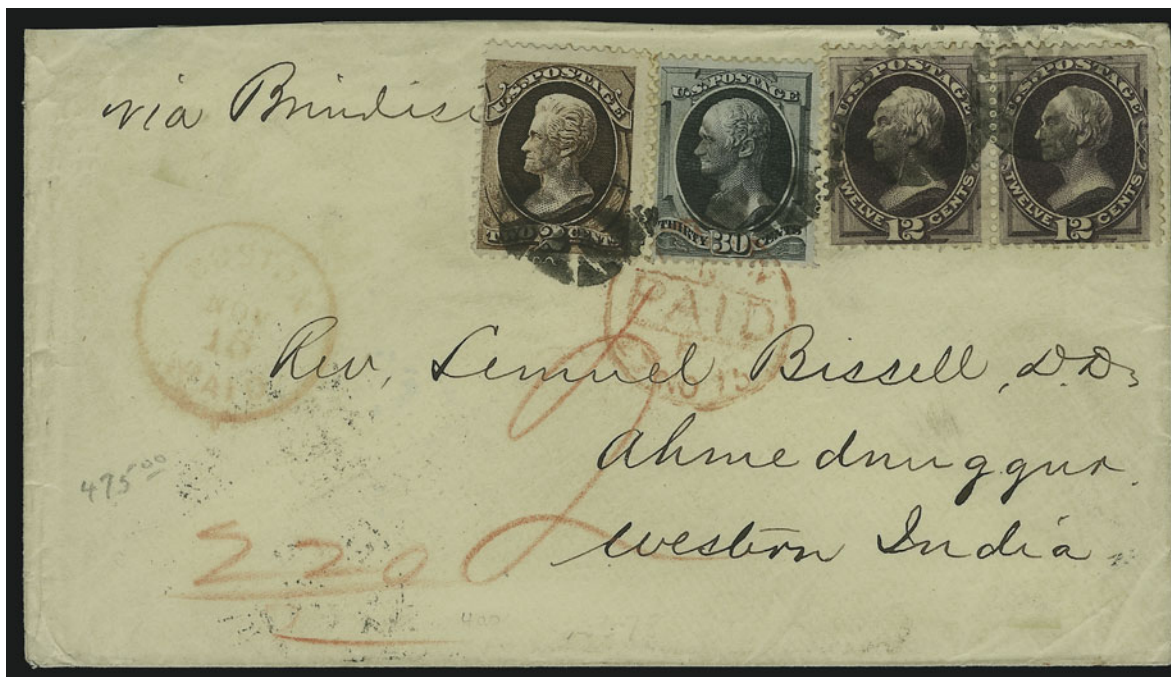 via Brindisi
U.S. POSTAGE
TWO 2 CENTS
U.S. POSTAGE
THIRTY 30 CENTS
U.S. POSTAGE
TWELVE 12 CENTS
U.S. POSTAGE
TWELVE 12 CENTS
PAID
Rev. Lemuel Bissell, D.D.
Ahmednuggur.
Western India
475 00
220
400